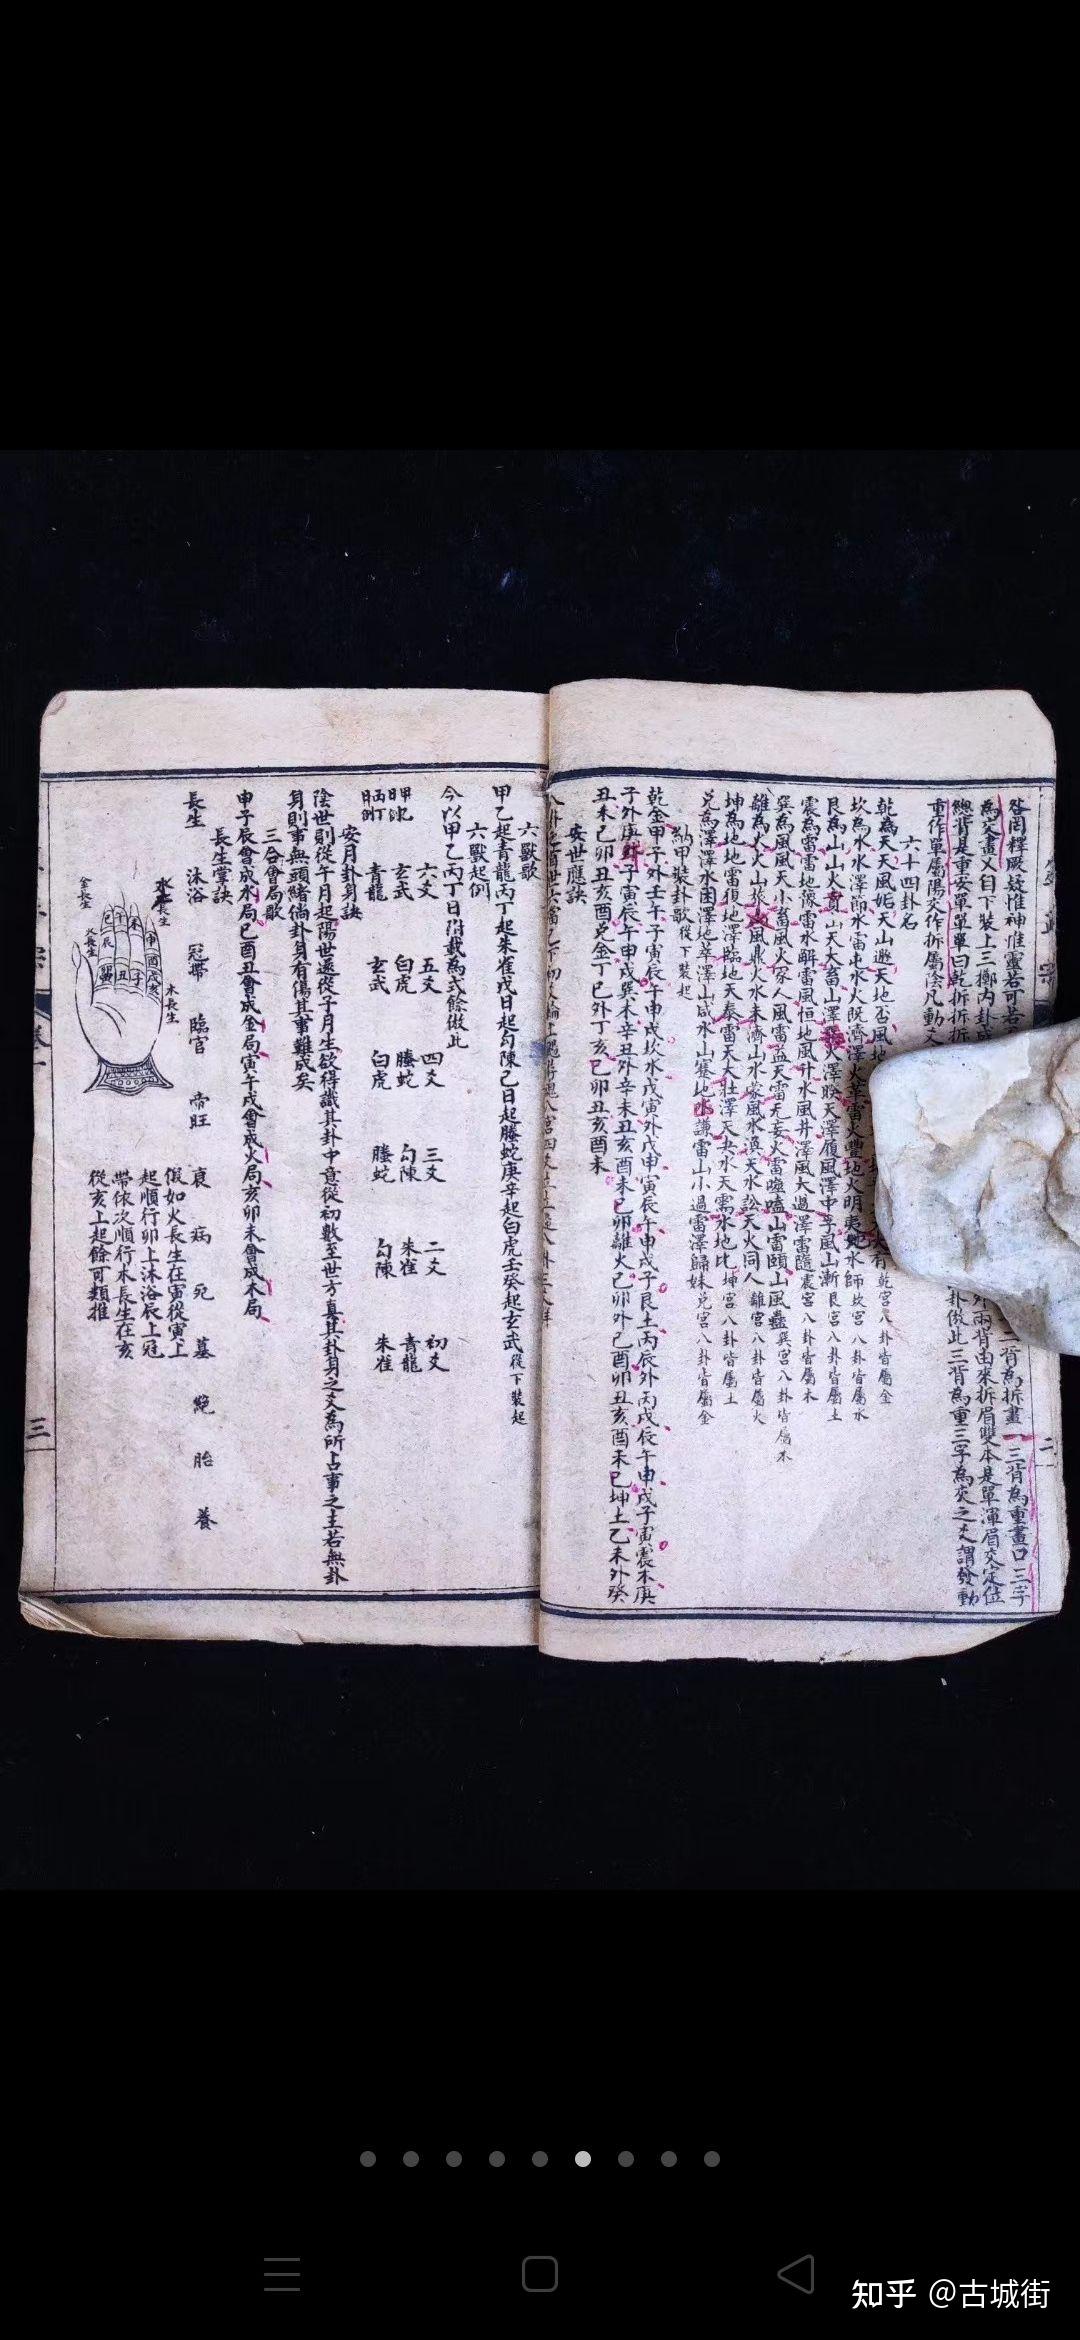 咎罔釋厥疑惟神惟靈若可若 二背為拆畫 三背為重畫口三字
為交畫乂自下裝上三擲內卦成 外兩背由來拆眉雙本是單渾眉交定位
總背是重安單單單曰乾拆拆拆 卦倣此三背為重三字為交之爻謂發動
重作單屬陽交作拆屬陰凡動爻
六十四卦名
乾為天天風姤天山遯天地否風地 有乾宮八卦皆屬金
坎為水水澤節水雷屯水火既濟澤火革雷火豐地火明夷地水師坎宮八卦皆屬水
艮為山山火賁山天大畜山澤損火澤睽天澤履風澤中孚風山漸艮宮八卦皆屬土
震為雷雷地豫雷水解雷風恒地風升水風井澤風大過澤雷隨震宮八卦皆屬木
巽為風風天小畜風火家人風雷益天雷无妄火雷噬嗑山雷頤山風蠱巽宮八卦皆屬木
離為火火山旅火風鼎火水未濟山水蒙風水渙天水訟天火同人離宮八卦皆屬火
坤為地地雷復地澤臨地天泰雷天大壯澤天夬水天需水地比坤宮八卦皆屬土
兌為澤澤水困澤地萃澤山咸水山蹇地山謙雷山小過雷澤歸妹兌宮八卦皆屬金
納甲裝卦歌從下裝起
乾金甲子外壬午子寅辰午申戌坎水戊寅外戊申寅辰午申戌子艮土丙辰外丙戌辰午申戌子寅震木庚
子外庚午子寅辰午申戌巽木辛丑外辛未丑亥酉未巳卯離火己卯外己酉卯丑亥酉未巳坤土乙未外癸
丑未巳卯丑亥酉兌金丁巳外丁亥巳卯丑亥酉未
安世應訣
六獸歌
甲乙起青龍丙丁起朱雀戊日起勾陳己日起螣蛇庚辛起白虎壬癸起玄武從下裝起
六獸起例
今以甲乙丙丁日附載為式餘倣此
六爻 五爻 四爻 三爻 二爻 初爻
甲乙日 玄武 白虎 螣蛇 勾陳 朱雀 青龍
丙丁日 青龍 玄武 白虎 螣蛇 勾陳 朱雀
安月卦身訣
陰世則從午月起陽世還從子月生欲得識其卦中意從初數至世方真其卦身之爻為所占事之主若無卦
身則事無頭緒倘卦身有傷其事難成矣
三合會局歌
申子辰會成水局巳酉丑會成金局寅午戌會成火局亥卯未會成木局
長生掌訣
長生 沐浴 冠帶 臨官 帝旺 衰 病 死 墓 絕 胎 養
假如火長生在寅從寅上
起順行卯上沐浴辰上冠
帶依次順行木長生在亥
從亥上起餘可類推
水長生
木長生
火長生
金長生
巳 午 未 申
辰 酉
卯 戌
寅 丑 子 亥
三
知乎 @古城街